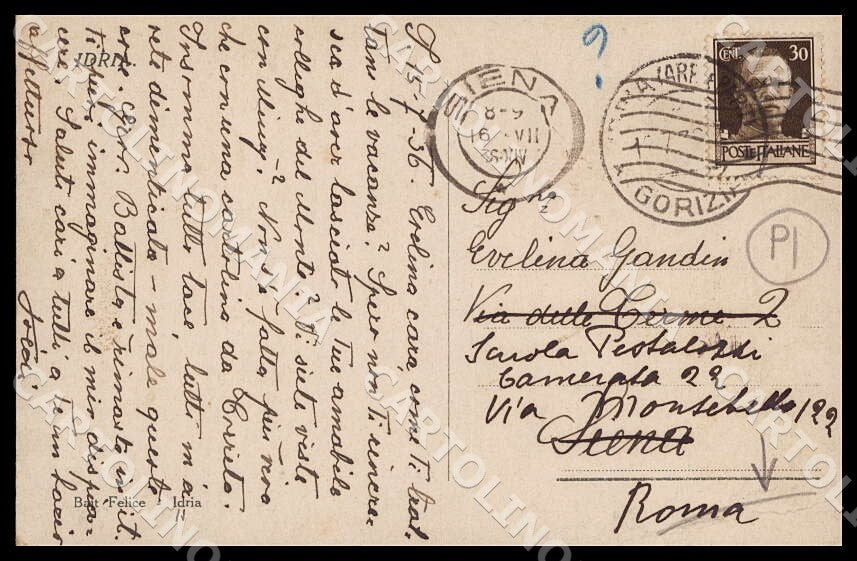 IDRIA
I 15-7-36. Evelina cara, come ti trat-
tan le vacanze? Spero non ti rincre-
sca d'aver lasciato le tue amabili
colleghe del Monte? Vi siete viste
con Miny? Non s'è fatta più viva
che con una cartolina da Loreto.
Insomma tutto tace, tutti m'à
reto dimenticata - male questo
Batt. è rimasta in it.
ti puoi immaginare il mio dispia-
cere. Saluti cari a tutti a te un bacio
affettuoso
Batt Felice - Idria
SIENA
8-9
16 VII
GORIZIA
CENT. 30
POSTE ITALIANE
?
PI
Sig.na
Evelina Gandin
Via delle Terme 2
Scuola Pestalozzi
Camerata 22
Via Montebello 122
Siena
Roma
CARTOLINOMANIA